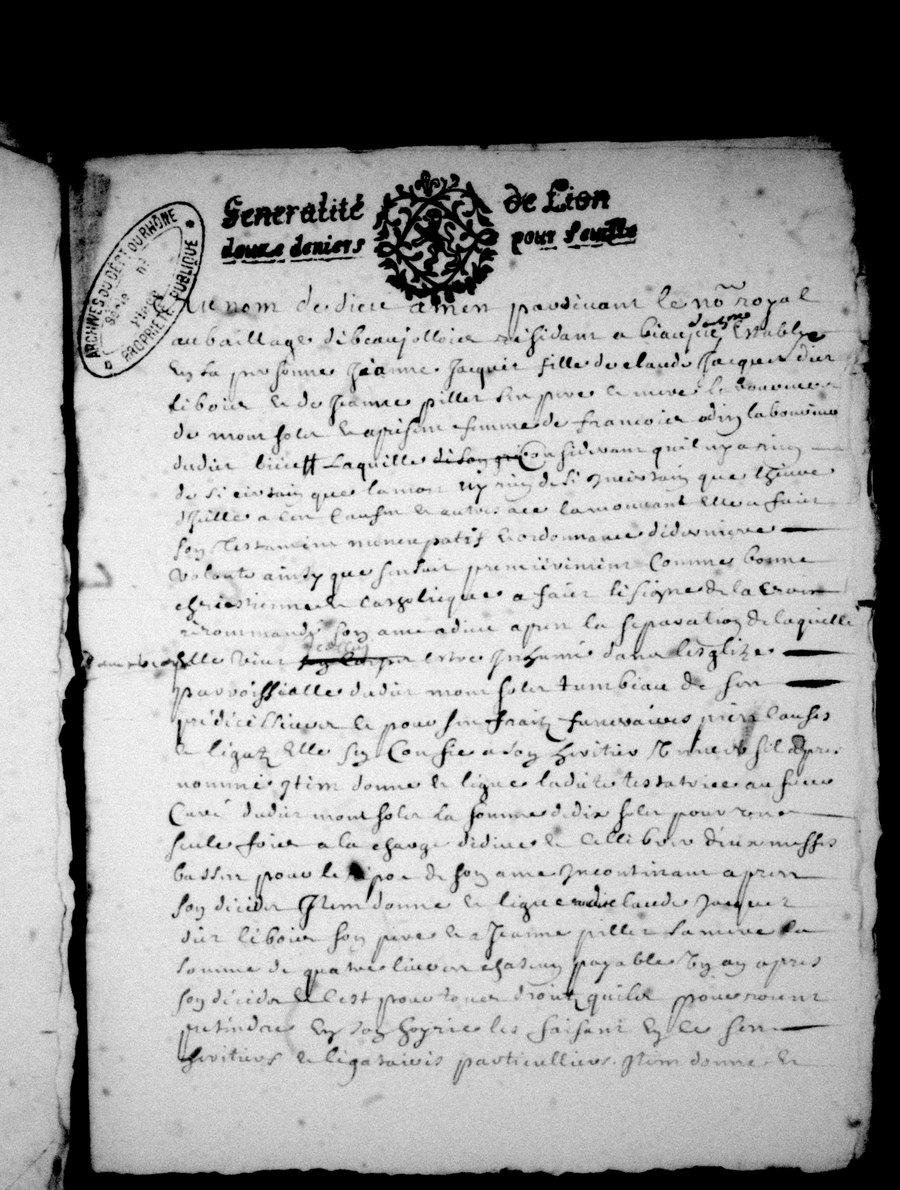 Generalité de Lion
douze deniers pour feuille
ARCHIVES DU DÉPT DU RHÔNE
PROPRIÉTÉ PUBLIQUE
Au nom de dieu amen pardevant le nore royal
au baillage de beaujollois residant a beaujeu Establye
En sa personne Jeanne Jacquet fille de claude Jacquet dit
liboier & de Jeanne pillet son pere & mere
de montsoler & apresent femme de francois odin laboureur
dudit lieu laquelle Considerant quil ny a rien
de si certain que la mort ny rien de si Incertain que lheure
dycelle a cette Cause & autres a ce la mouvant Elle a faict
son Testament noncupatif & ordonnance de derniere
volonté ainsy que sensuit premierement Comme bonne
chrestienne & Catholique a faict le signe de la Croix
recommandé son ame a dieu apres la separation de laquelle
Elle veut Estre Inhumé dans lesglize
parroissialle dudit montsoler tumbeau de ses
predecesseurs & pour ses fraitz funeraires pieux laisses
& legatz Elle sen Confie a son heritier
nommé Item donne & legue ladite testatrice au sieur
Curé dudit montsoler la somme de dix soler pour une
seule foier a la charge de dire & Cellebrer deux messes
basses pour le repoe de son ame Incontinant apres
son decider Item donne & legue a claude Jacquet
dit liboier son pere & a Jeanne pillet sa mere la
somme de quatre livres chacun payable En an apres
son decider & Cest pour tous droitz quiler pourroient
pretendre En son hoyrie les faisant En ce ses
heritiers & legataires particulliers. Item donne &